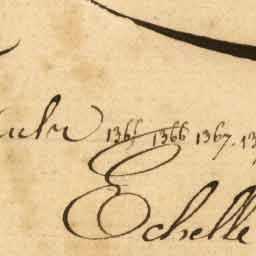 1365 1366 1367. 13
Echelle